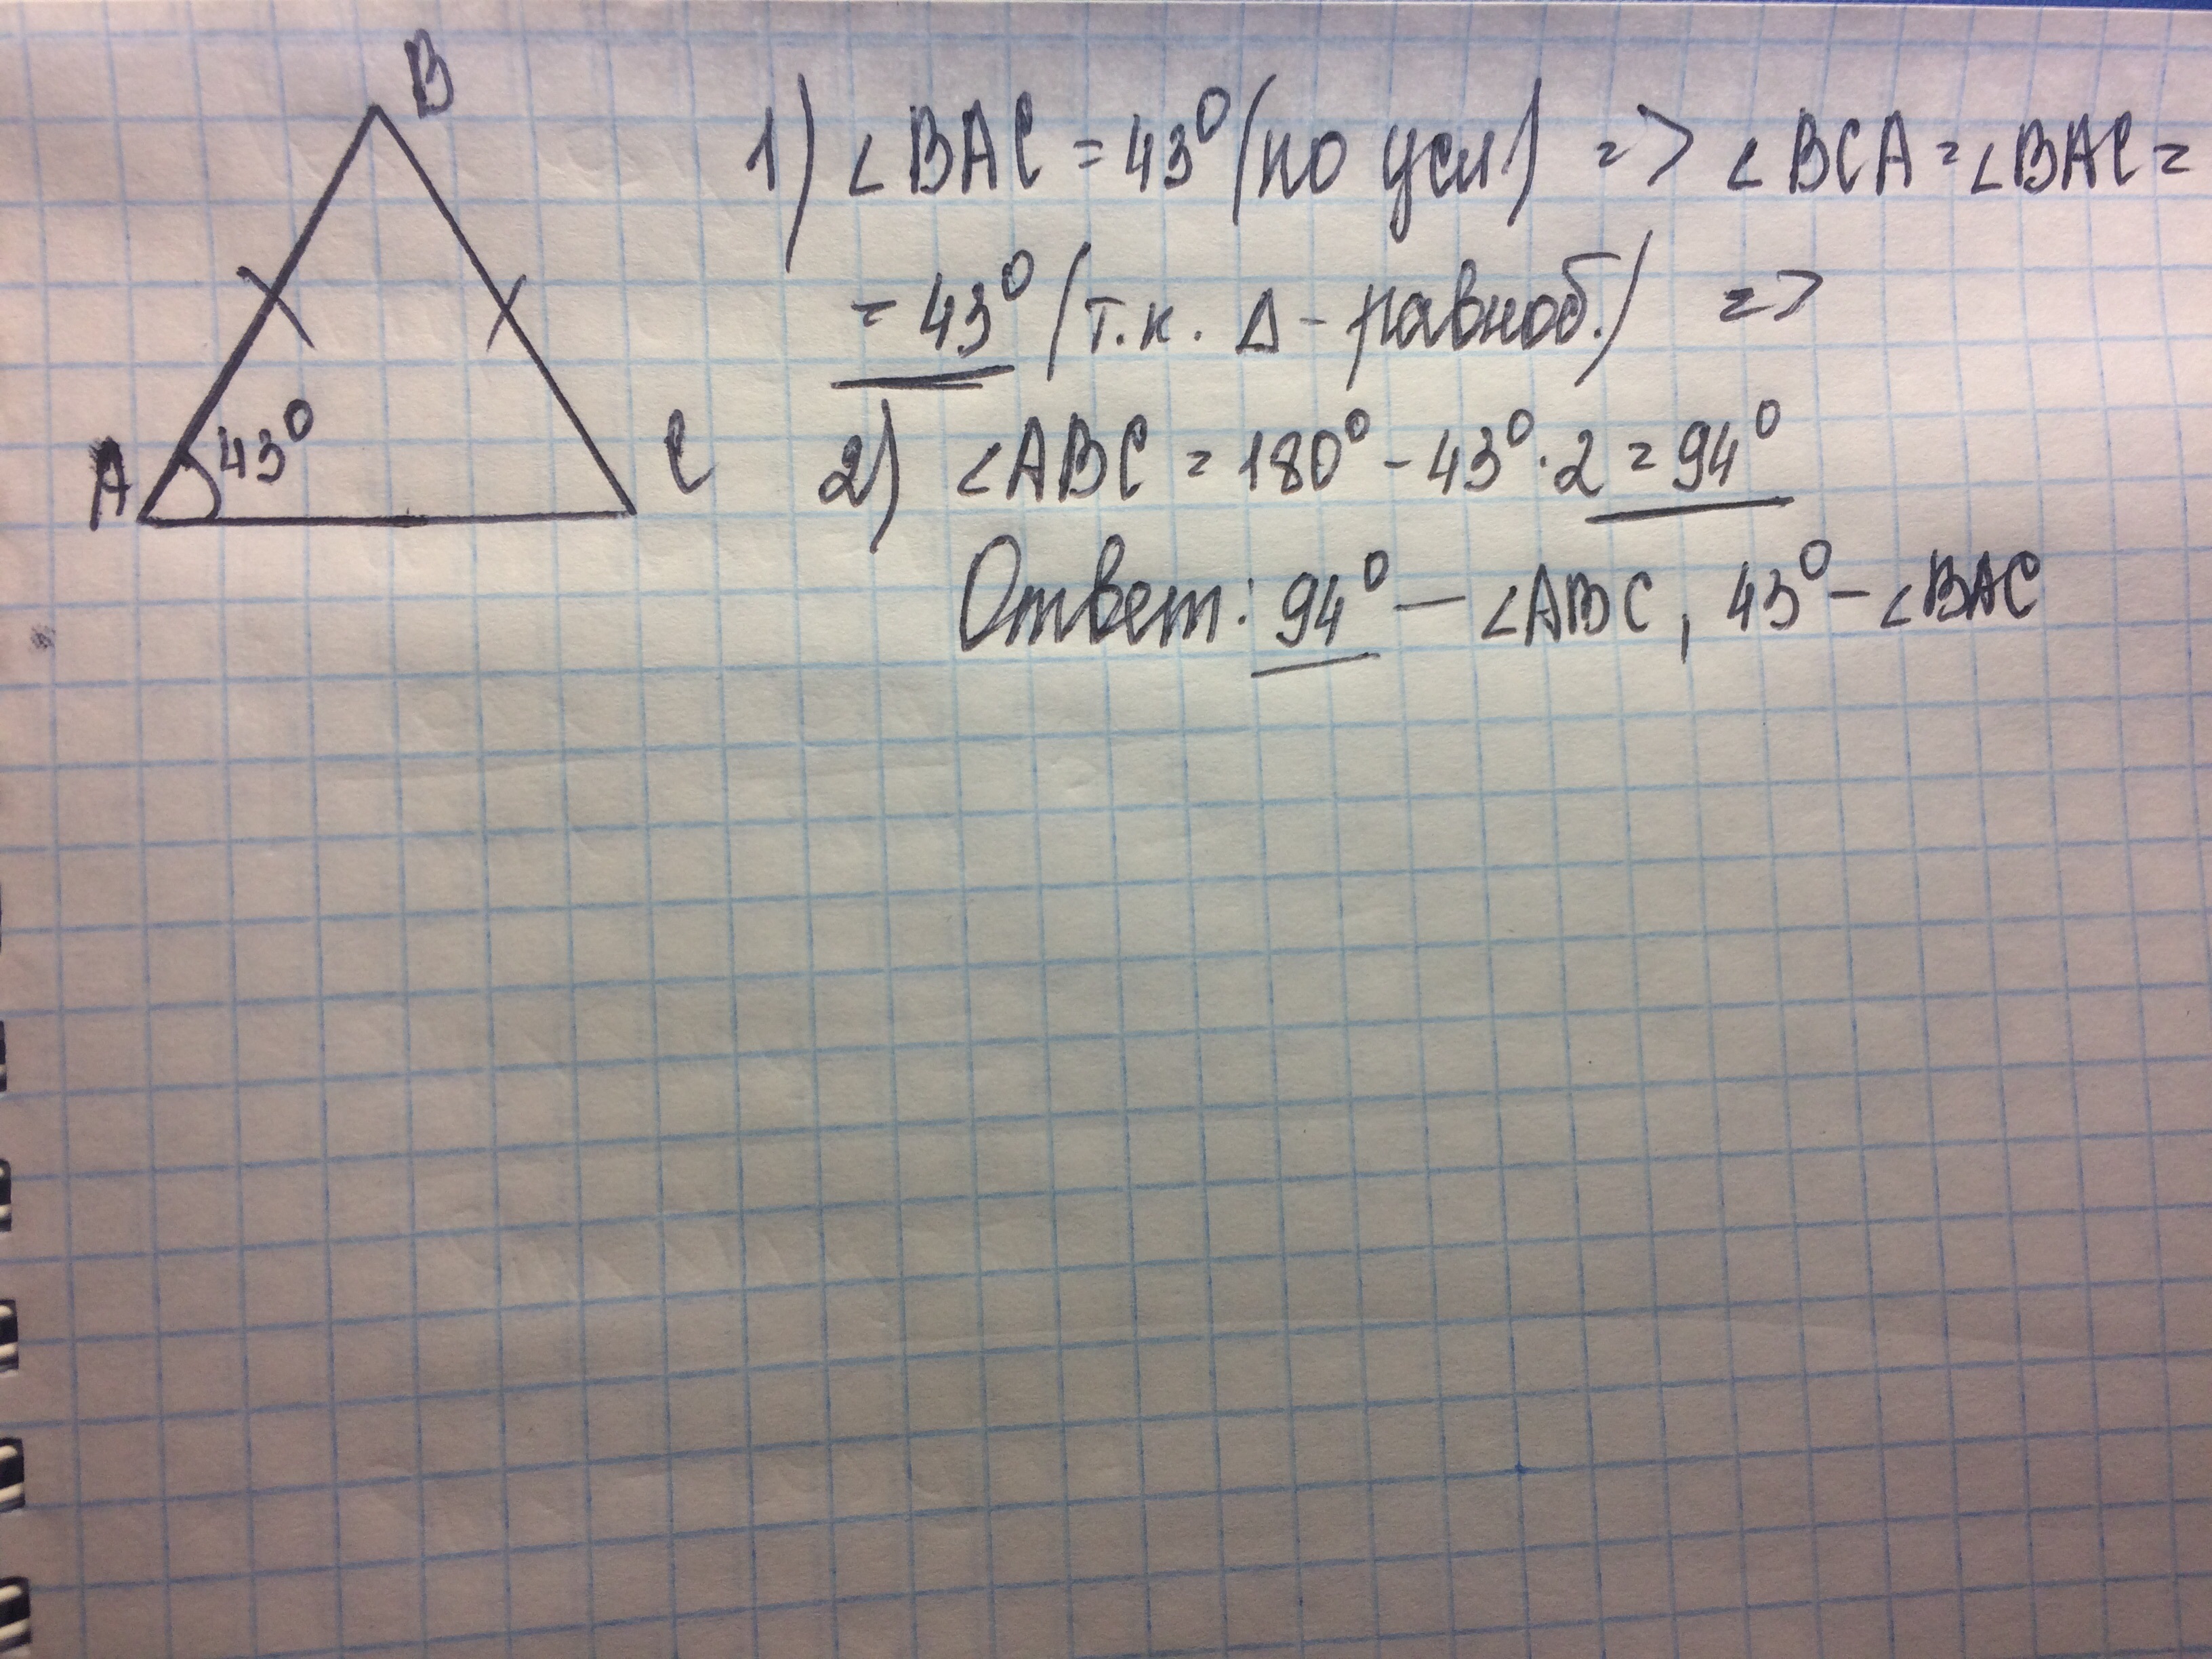 B
A
43°
C
1) ∠BAC = 43° (по усл) => ∠BCA = ∠BAC =
= 43° (т.к. Δ - равноб.) =>
2) ∠ABC = 180° - 43° · 2 = 94°
Ответ: 94° — ∠ABC, 43° - ∠BAC